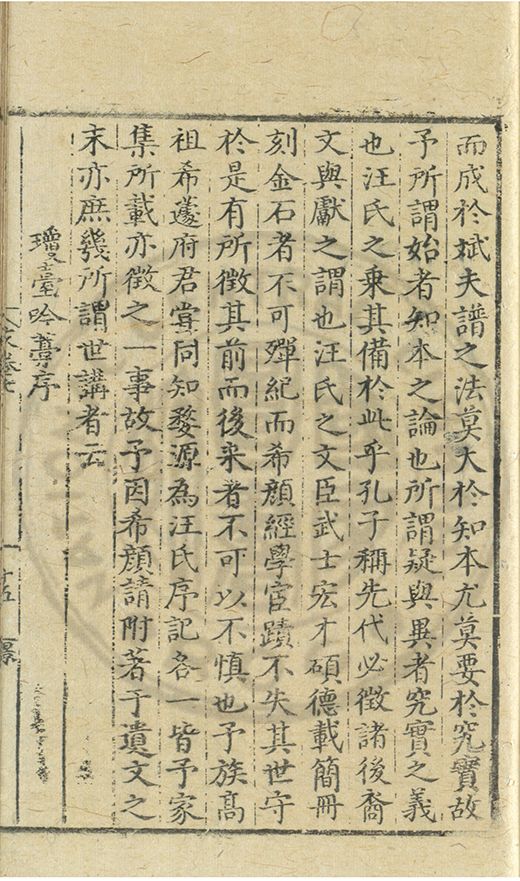 而成於斌夫譜之法莫大於知本尤莫要於究實故
予所謂始者知本之論也所謂疑與異者究實之義
也汪氏之乘其備於此乎孔子稱先代必徵諸後裔
文與獻之謂也汪氏之文臣武士宏才碩德載簡冊
刻金石者不可殫紀而希顏經學宦蹟不失其世守
於是有所徵其前而後来者不可以不慎也予族髙
祖希蘧府君嘗同知婺源為汪氏序記各一皆予家
集所載亦徵之一事故予因希顏請附著于遺文之
末亦庶幾所謂世講者云
瓊臺吟藁序
十五